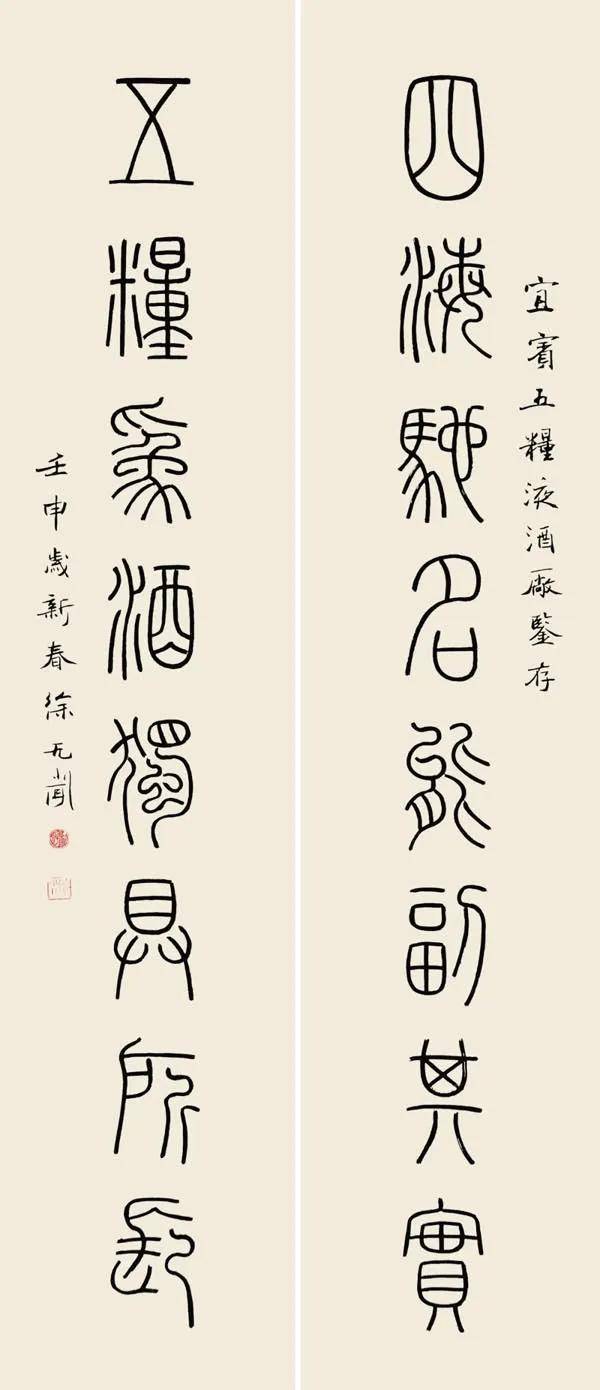 宜賓五糧液酒廠鑒存
四海馳名能副其實
五糧為酒獨具所長
壬申歲新春徐无聞